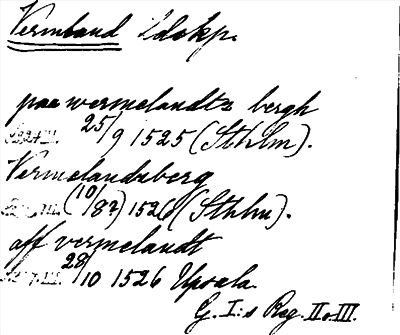 Vermland Ldskp.
paa wermelandtz bergh
25/9 1525 (Sthlm).
Vermelandzberg
(10/8?) 1526 (Sthlm).
aff vermelandt
28/10 1526 Upsala.
G. I:s Reg. II o. III.